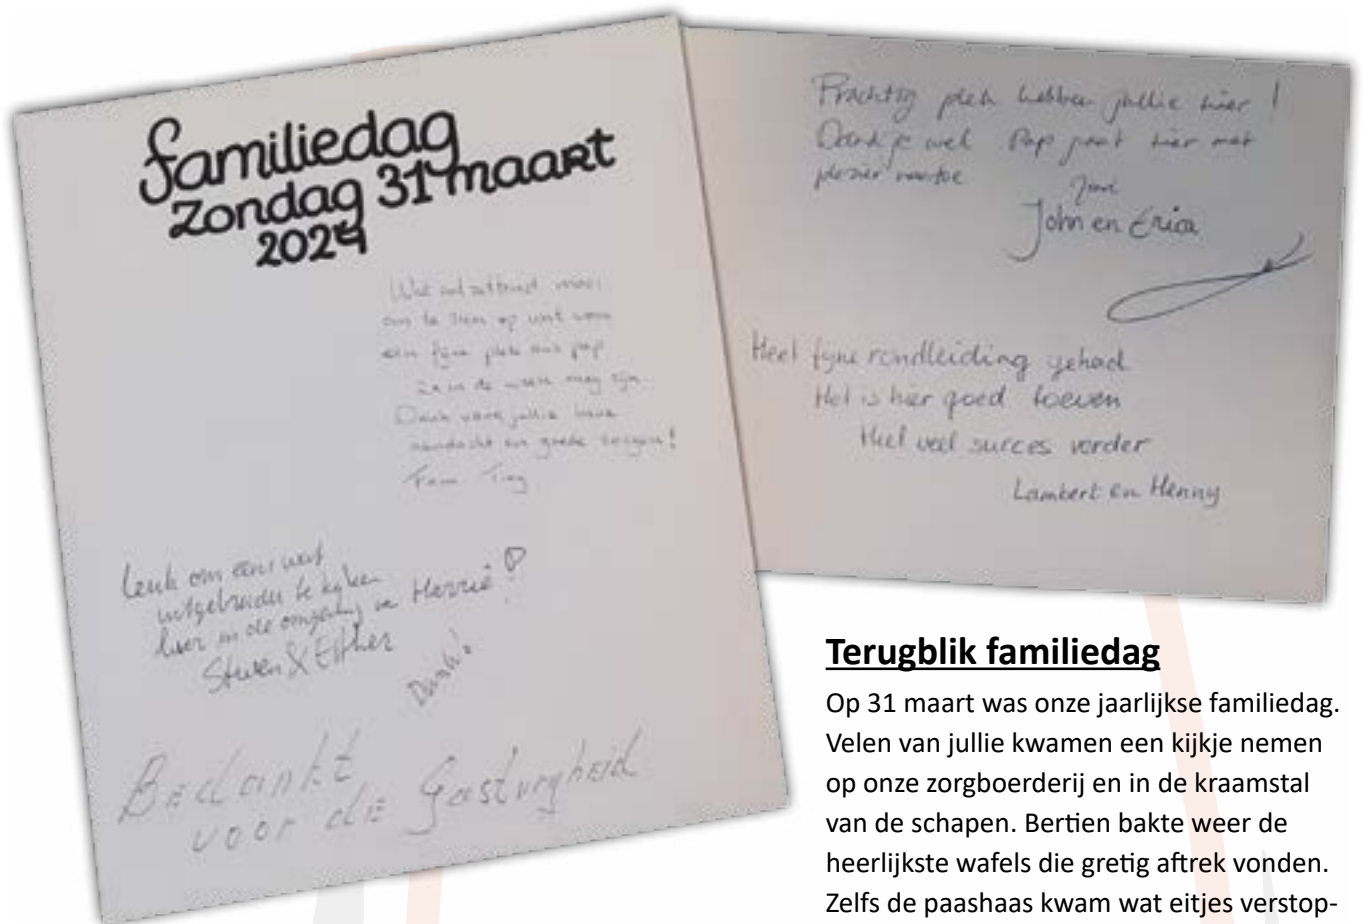 familiedag
zondag 31 maart
2024
Wat ontzettend mooi
om te zien op wat voor
een fijne plek ons pap
2x in de week mag zijn.
Dank voor jullie lieve
aandacht en goede zorgen!
Fam. Tiny
Leuk om eens wat
uitgebreider te kijken
hier in de omgeving van Herrie!
Steven & Esther
Bedankt
voor die Gastvrijheid
Prachtig plek hebben jullie hier!
Dank je wel Pap gaat hier met
plezier naartoe
John en Erica
Heel fijne rondleiding gehad
Het is hier goed toeven
Heel veel succes verder
Lambert en Henny
Terugblik familiedag
Op 31 maart was onze jaarlijkse familiedag.
Velen van jullie kwamen een kijkje nemen
op onze zorgboerderij en in de kraamstal
van de schapen. Bertien bakte weer de
heerlijkste wafels die gretig aftrek vonden.
Zelfs de paashaas kwam wat eitjes verstop-